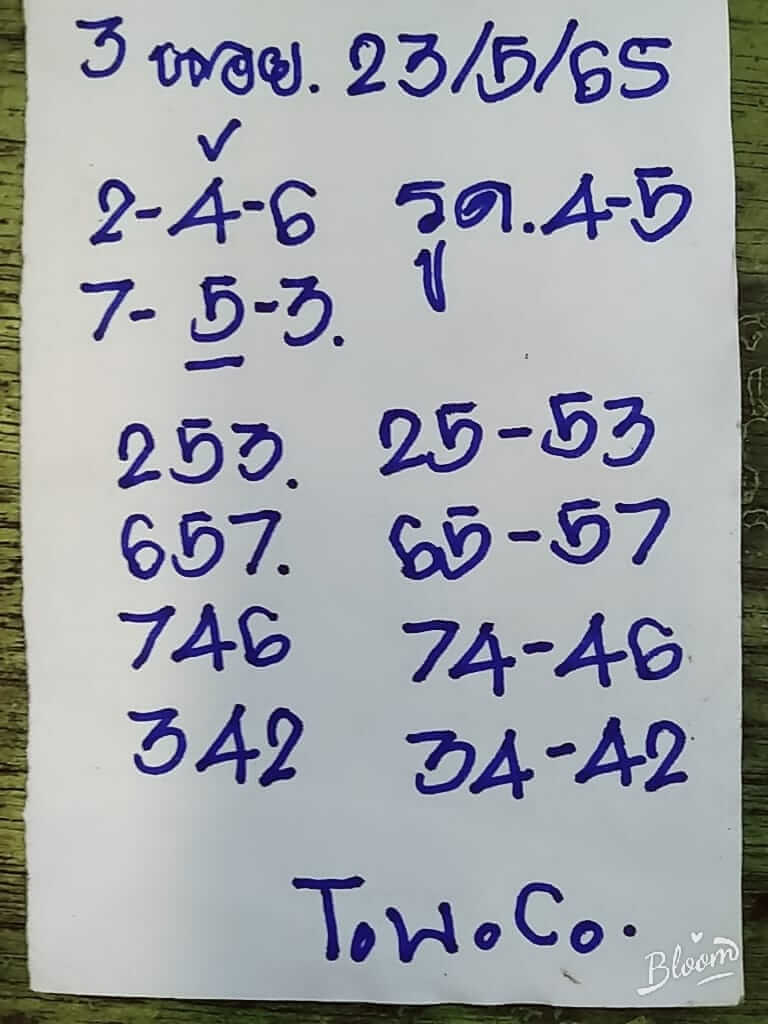 3 หอย. 23/5/65
✓
2-4-6 รูด.4-5
7-5-3.
253. 25-53
657. 65-57
746 74-46
342 34-42
T.W.Co.
Bloom